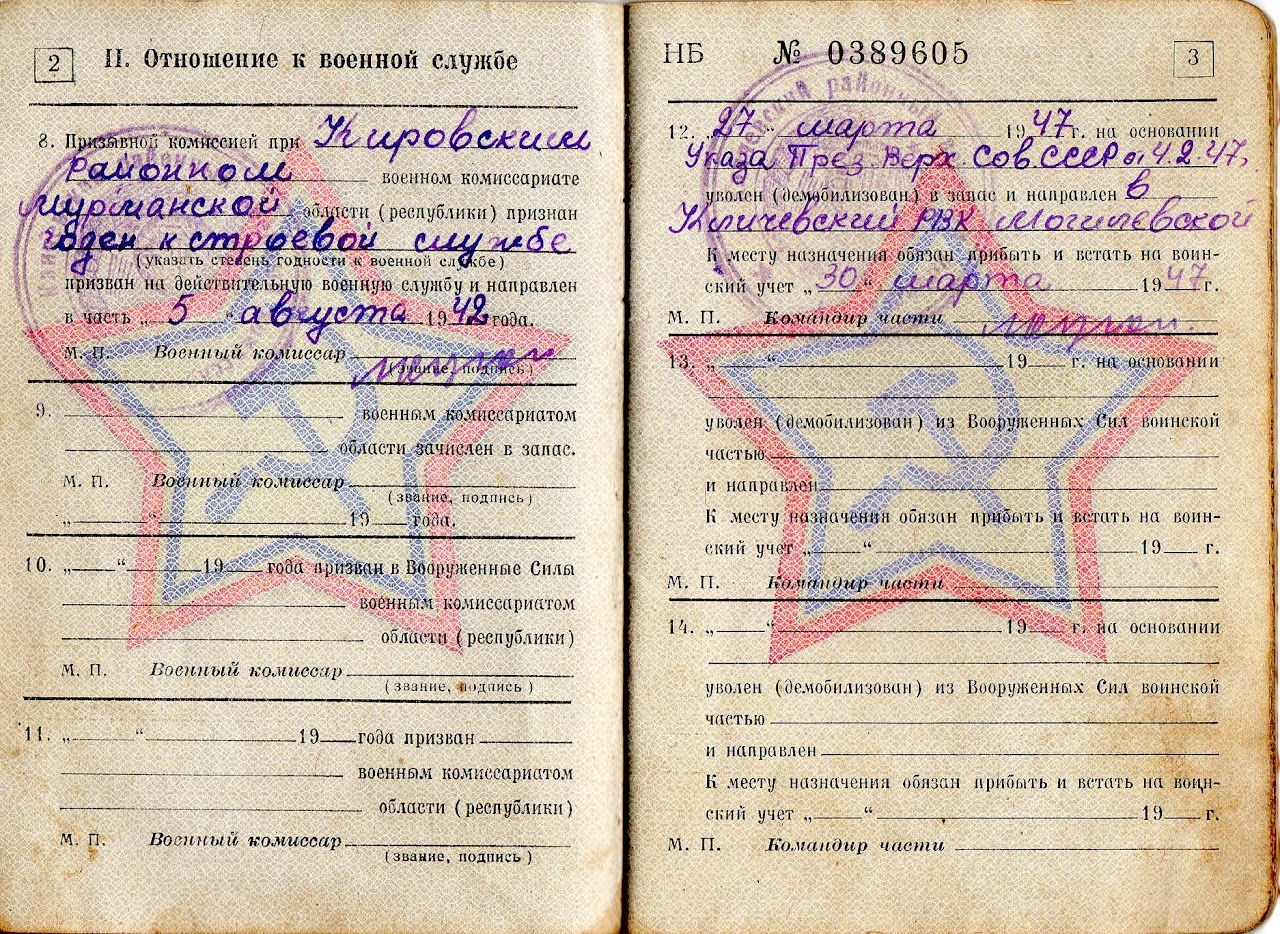 2
II. Отношение к военной службе
8. Призывной комиссией при Кировским
Районном военном комиссариате
Мурманской области (республики) признан
годен к строевой службе
(указать степень годности к военной службе)
призван на действительную военную службу и направлен
в часть „5“ августа 1942 года.
М. П. Военный комиссар
(звание, подпись)
9. военным комиссариатом
области зачислен в запас.
М. П. Военный комиссар
(звание, подпись)
„ “ 19 года.
10. „ “ 19 года призван в Вооруженные Силы
военным комиссариатом
области (республики)
М. П. Военный комиссар
(звание, подпись)
11. „ “ 19 года призван
военным комиссариатом
области (республики)
М. П. Военный комиссар
(звание, подпись)
НБ № 0389605
3
12. „27“ марта 1947 г. на основании
Указа През. Верх. Сов. СССР от 4.2.47,
уволен (демобилизован) в запас и направлен в
Кличевский РВК Могилевской
К месту назначения обязан прибыть и встать на воин-
ский учет „30“ марта 1947 г.
М. П. Командир части
13. „ “ 19 г. на основании
уволен (демобилизован) из Вооруженных Сил воинской
частью
и направлен
К месту назначения обязан прибыть и встать на воин-
ский учет „ “ 19 г.
М. П. Командир части
14. „ “ 19 г. на основании
уволен (демобилизован) из Вооруженных Сил воинской
частью
и направлен
К месту назначения обязан прибыть и встать на воин-
ский учет „ “ 19 г.
М. П. Командир части